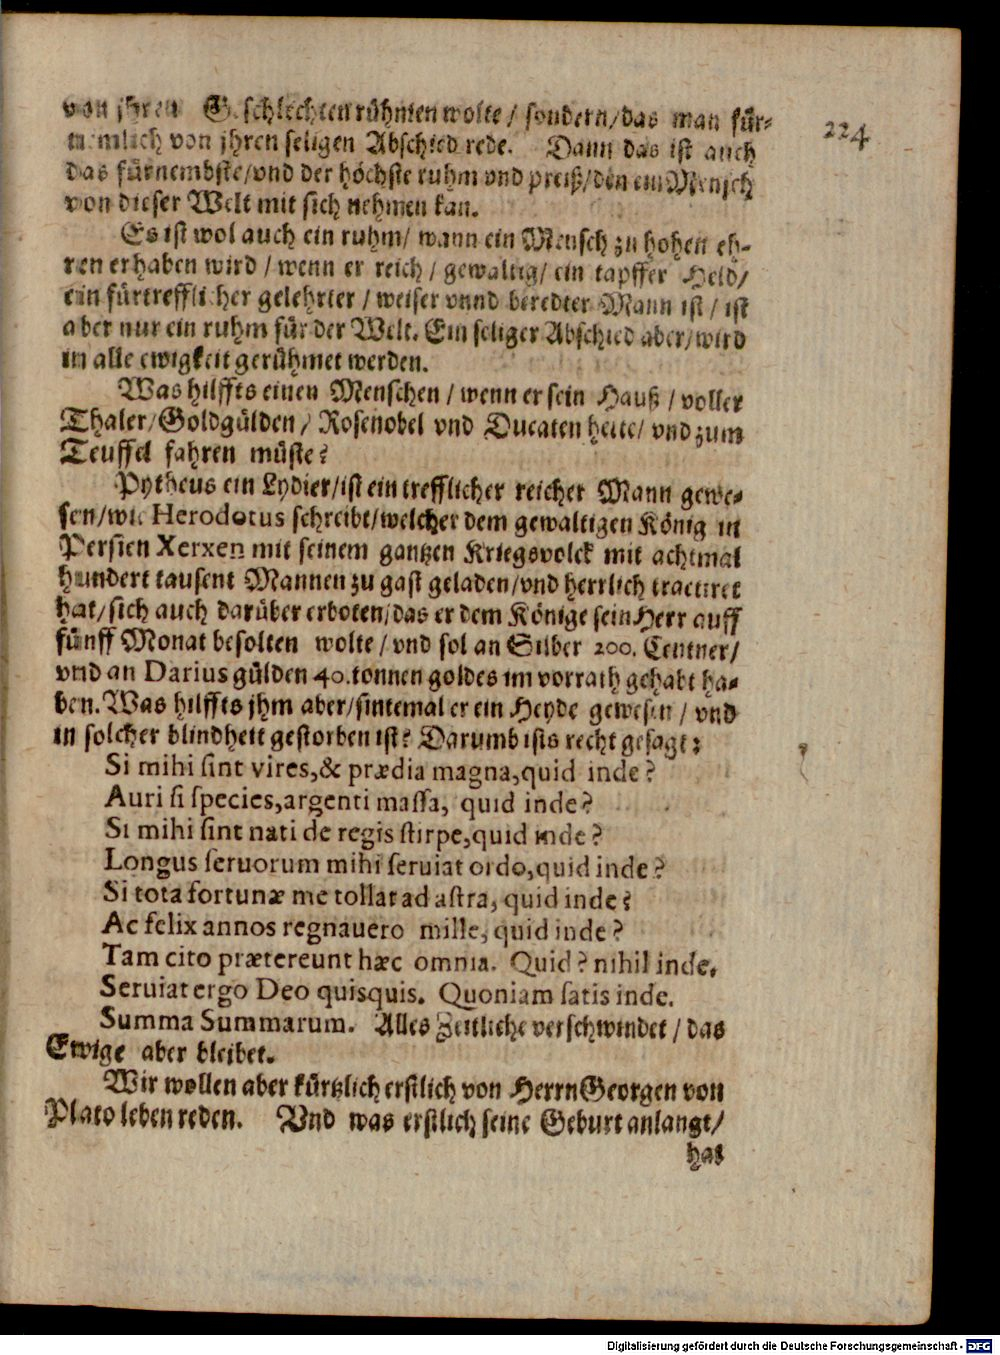 von jhren Geschlechten rühmen wolte / sondern / das man für-
nemlich von jhren seligen Abschied rede. Dann das ist auch
das fürnembste / vnd der höchste ruhm vnd preiß / den ein Mensch
von dieser Welt mit sich nehmen kan.
Es ist wol auch ein ruhm / wann ein Mensch zu hohen eh-
ren erhaben wird / wenn er reich / gewaltig / ein tapffer Held /
ein fürtrefflicher gelehrter / weiser vnnd beredter Mann ist / ist
aber nur ein ruhm für der Welt. Ein seliger Abschied aber / wird
in alle ewigkeit gerühmet werden.
Was hilffts einen Menschen / wenn er sein Hauß / voller
Thaler / Goldgülden / Rosenobel vnd Ducaten hette / vnd zum
Teuffel fahren müste?
Pytheus ein Lydier / ist ein trefflicher reicher Mann gewe-
sen / wie Herodotus schreibt / welcher dem gewaltigen König in
Persien Xerxen mit seinem gantzen Kriegsvolck mit achtmal
hundert tausent Mannen zu gast geladen / vnd herrlich tractiret
hat / sich auch darüber erboten / das er dem Könige sein Herr auff
fünff Monat besolten wolte / vnd sol an Silber 200. Centner /
vnd an Darius gülden 40. tonnen goldes im vorrath gehabt ha-
ben. Was hilffts jhm aber / sintemal er ein Heyde gewesen / vnd
in solcher blindheit gestorben ist? Darumb ists recht gesagt:
Si mihi sint vires, & prædia magna, quid inde?
Auri si species, argenti massa, quid inde?
Si mihi sint nati de regis stirpe, quid inde?
Longus seruorum mihi seruiat ordo, quid inde?
Si tota fortunæ me tollat ad astra, quid inde?
Ac felix annos regnauero mille, quid inde?
Tam cito prætereunt hæc omnia. Quid? nihil inde.
Seruiat ergo Deo quisquis. Quoniam satis inde.
Summa Summarum. Alles Zeitliche verschwindet / das
Ewige aber bleibet.
Wir wollen aber kürtzlich erstlich von Herrn Georgen von
Plato leben reden. Vnd was erstlich seine Geburt anlangt /
hat
224
Digitalisierung gefördert durch die Deutsche Forschungsgemeinschaft - DFG